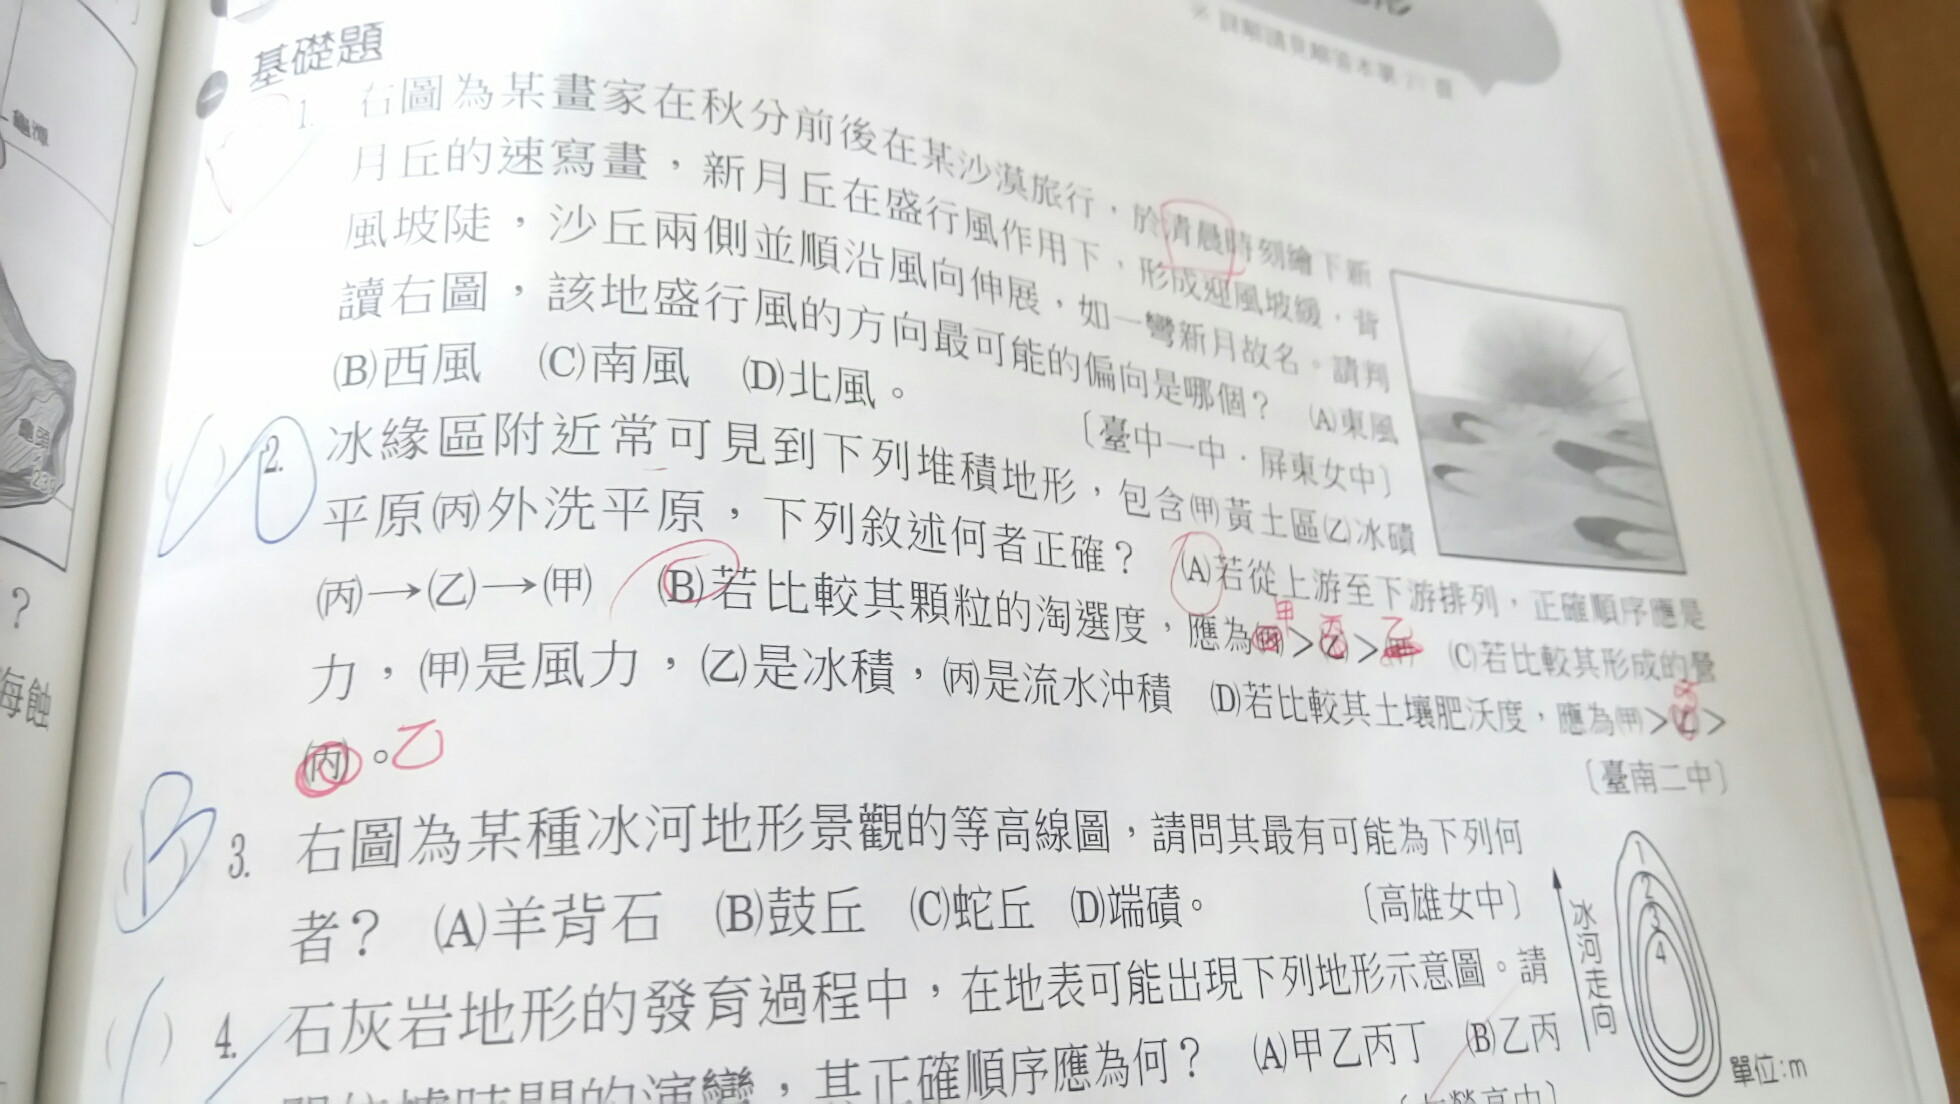 龜潭
龜頭
231
?
海蝕
※詳解請見解答本第21頁
一 基礎題
1. 右圖為某畫家在秋分前後在某沙漠旅行，於清晨時刻繪下新
月丘的速寫畫，新月丘在盛行風作用下，形成迎風坡緩，背
風坡陡，沙丘兩側並順沿風向伸展，如一彎新月故名。請判
讀右圖，該地盛行風的方向最可能的偏向是哪個？ (A)東風
(B)西風 (C)南風 (D)北風。
〔臺中一中．屏東女中〕
2. 冰緣區附近常可見到下列堆積地形，包含(甲)黃土區(乙)冰磧
平原(丙)外洗平原，下列敘述何者正確？ (A)若從上游至下游排列，正確順序應是
(丙)→(乙)→(甲) (B)若比較其顆粒的淘選度，應為(丙)>(乙)>(甲) (C)若比較其形成的營
甲 丙 乙
力，(甲)是風力，(乙)是冰積，(丙)是流水沖積 (D)若比較其土壤肥沃度，應為(甲)>(乙)>
丙
(丙)。乙
〔臺南二中〕
B
3. 右圖為某種冰河地形景觀的等高線圖，請問其最有可能為下列何
者？ (A)羊背石 (B)鼓丘 (C)蛇丘 (D)端磧。
〔高雄女中〕
1
2
3
4
冰河走向
單位:m
4. 石灰岩地形的發育過程中，在地表可能出現下列地形示意圖。請
的演變，其正確順序應為何？ (A)甲乙丙丁 (B)乙丙